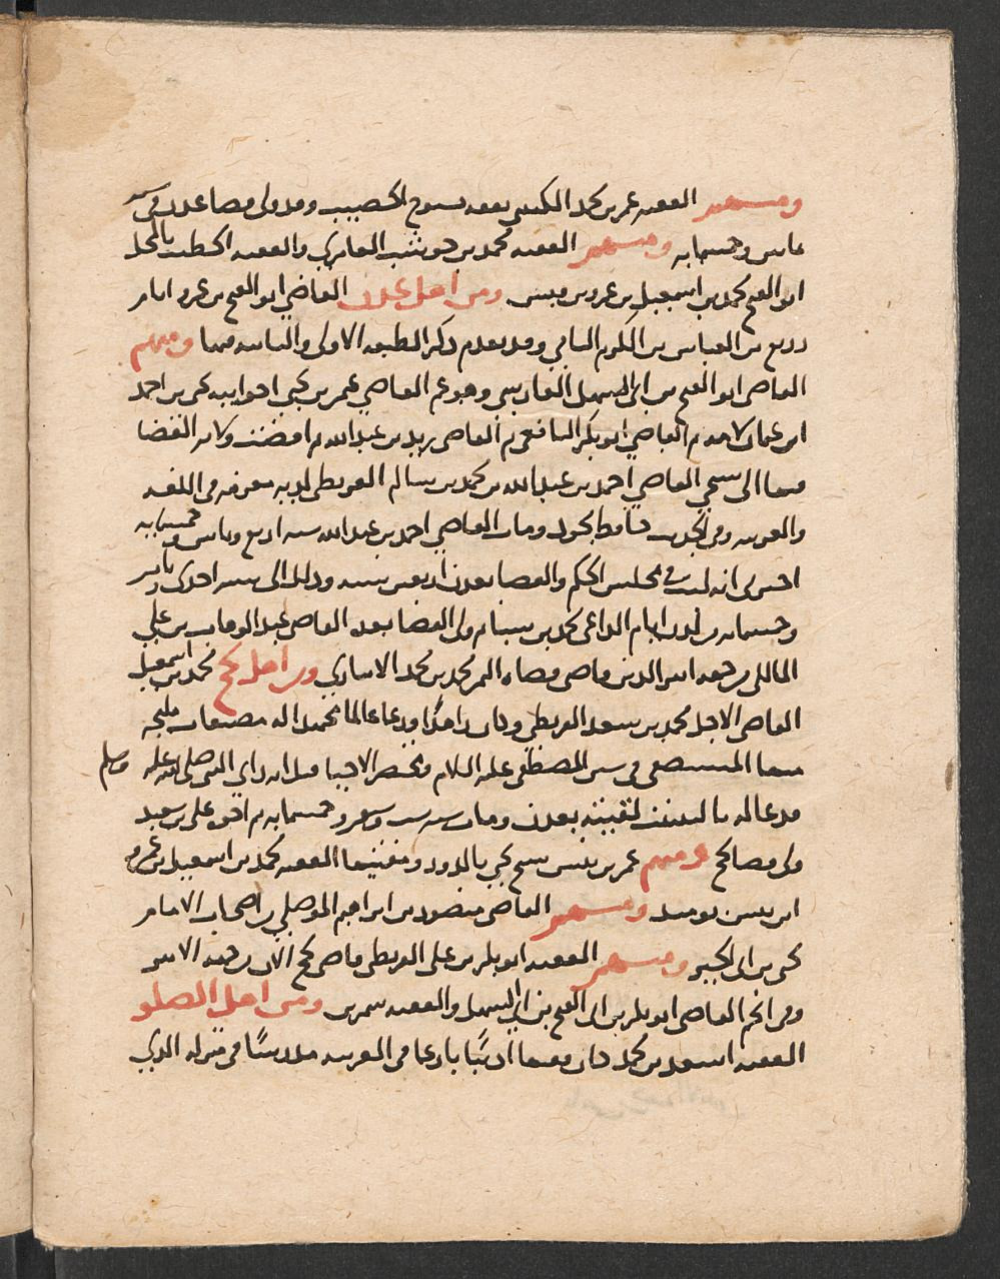 ومنهم الفقيه عمر بن محمد الكبيبي تفقه بشيوخ الخصيب وقد ولي قضا عدن في سنة
ثمانين وخمسمايه ومنهم الفقيه محمد بن حوشب العامري والفقيه الخطيب بالمحل
ابو الفتح محمد بن اسمعيل بن عمرو بن ومن اهل عدن القاضي ابو الفتح بن عمرو ايام
زريع بن العباس بن المكرم اليامي وقد تقدم ذكر الطبقه الاولى والثانيه فيها ومنهم
القاضي ابو الفتح بن ابي السهل الفارسي وهو عم القاضي عمر بن يحيى اخو ابيه يحيى بن احمد
ثم القاضي ابو بكر اليافعي ثم القاضي بن عبد الله ثم افضت ولايه القضا
فيها الى شيخي القاضي احمد بن عبد الله بن محمد بن سالم القريظي لديه معرفه في اللغه
والعربيه وفي الحديث ومات القاضي احمد بن عبد الله سنه اربع وثمانين وخمسمايه
اخبرني انه لبث في مجلس الحكم والقضا بعدن اربعين سنه وذلك الى سنه احدى وثمانين
وخمسمايه من لدن ايام الداعي محمد بن سبا ثم ولي القضا بعده القاضي عبد الوهاب بن علي
المالكي من جهه اثير الدين قاضي قضاه اليمن محمد بن محمد الانباري ومن اهل لحج محمد بن اسمعيل
القاضي الاجل محمد بن سعد القريظي وكان زاهدًا ورعا عالما مجتهدا له مصنفات مليحه
منها المستصفى في سنن المصطفى عليه السلام ومختصر الاحيا قيل انه راى النبي صلى الله عليه وسلم
قد دعا له بالتثبيت لقيته بعدن ومات سنه ست وسبعين وخمسمايه ثم اخوه علي بن سعيد
ولي قضا لحج ومنهم عمر بن شيخ بالدور ومفتيها الفقيه محمد بن اسمعيل بن عمرو
ابن يومئذ ومنهم القاضي منصور بن ابراهيم الموصلي من اصحاب الامام
يحيى بن ابي الخير ومنهم الفقيه ابو بكر بن علي القريظي قاضي لحج الان من جهه الاثير
وفي القاضي ابو بكر بن ابي الفتح بن ابي السهل والفقيه ومن اهل الصلو
الفقيه اسعد بن محمد كان فقيها اديبًا بارعا في العربيه مدرسًا في منزله الذي